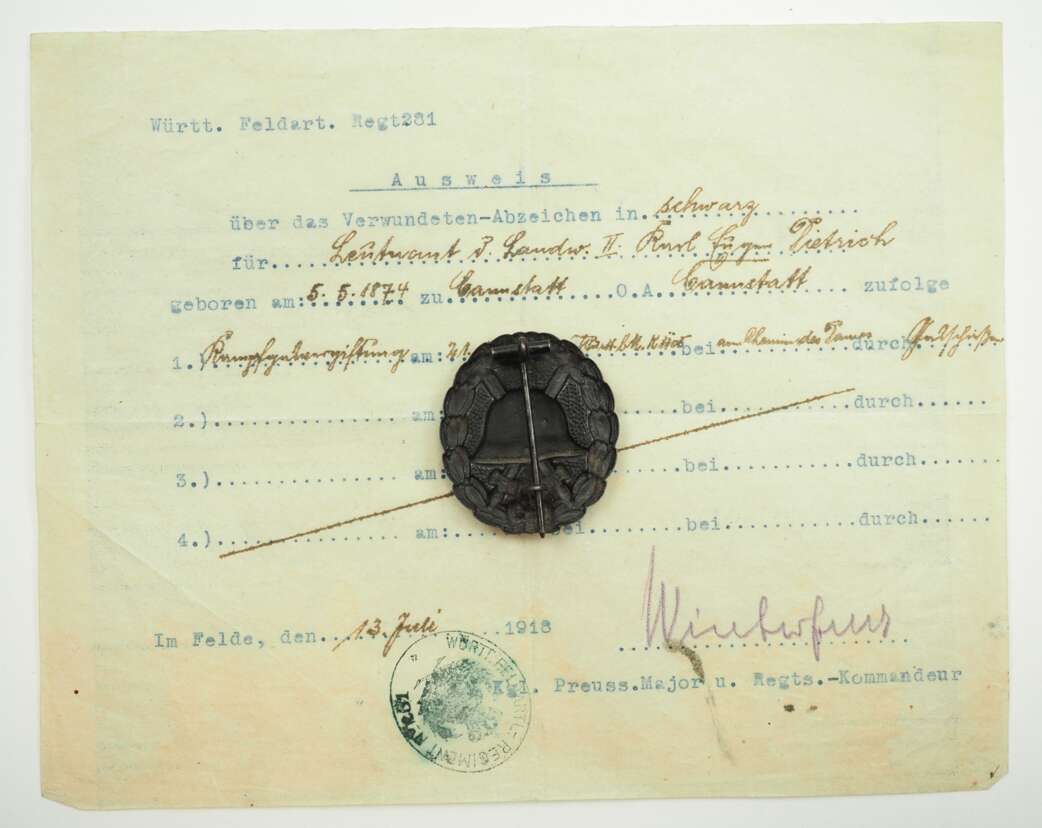 Württ. Feldart. Regt281
Ausweis
über das Verwundeten-Abzeichen in. schwarz
für Leutnant d. Landw. II. Karl Eugen Dietrich
geboren am: 5.5.1874 zu Cannstatt O.A. Cannstatt zufolge
1. Kampfgasvergiftung am: bei am Chemin des Dames durch
2.) am: bei durch
3.) am: bei durch
4.) am: bei bei durch
Im Felde, den 13. Juli 1918
Kgl. Preuss.Major u. Regts.-Kommandeur
WÜRTT. FELDARTL-REGIMENT No 281